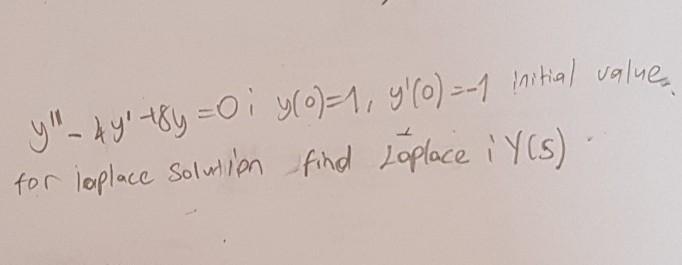 y'' - 4y' + 8y = 0 ; y(0)=1, y'(0)=-1 initial value.
for laplace solution find Laplace ; Y(s) .